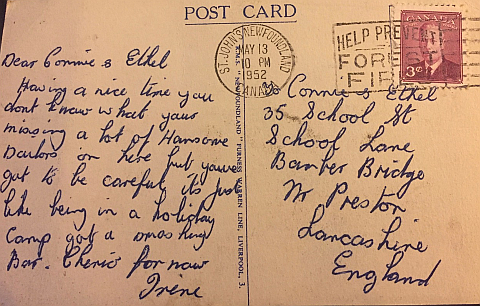 POST CARD
ST. JOHN'S NEWFOUNDLAND
MAY 13
10 PM
1952
CANADA
HELP PREVENT
FOREST
FIRES
CANADA
3c
Dear Connie & Ethel
Having a nice time you
dont know what your
missing a lot of Hansome
Sailors on here but youve
got to be careful, its just
like being in a holiday
Camp got a smashing
Bar. Cherio for now
Irene
"NEWFOUNDLAND" FURNESS WARREN LINE, LIVERPOOL, 3.
To Connie & Ethel
35 School St
School Lane
Bamber Bridge
Nr Preston
Lancashire
England